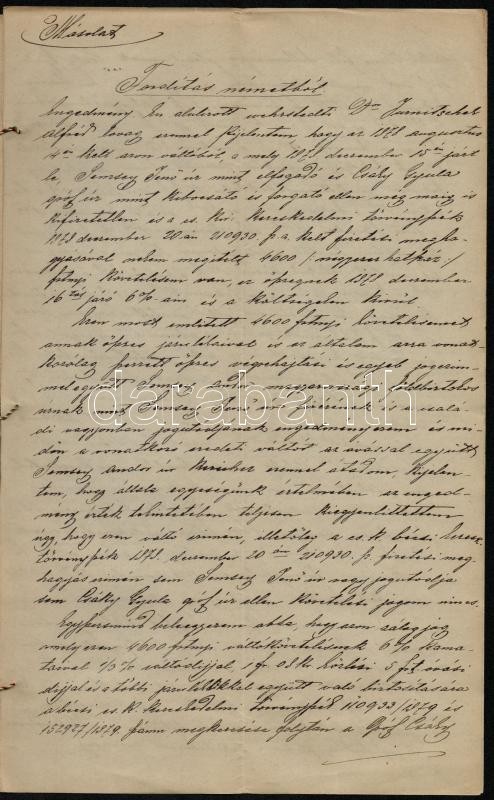 Másolat
Fordítás németből
Engedmény. Én alulirott wehrstedti Dr Jurnitschek
Alfréd lovag ezennel kijelentem, hogy az 1878 augusztus
4én kelt azon váltóból, a mely 1878 december 15én járt
le Semsey Jenő úr mint elfogadó és Csáky Gyula
gróf úr mint kibocsátó és forgató ellen még máig is
kifizetetlen és a cs. kir. kereskedelmi törvényszék
1878 december 20 án 210930 sz. a. kelt fizetési megha-
gyásával nekem megitélt 4600 /:négyezer hatszáz:/
forintnyi követelésem van, az öszvegnek 1878 december
16tól járó 6% ain és a költségeken kivül.
Ezen most emlitett 4600 forintnyi követelésemet
annak összes járulékaival és az általam arra vonat-
kozólag szerzett összes végrehajtási és egyéb jogaim-
mal együtt Semsey Andor magyarországi földbirtokos
úrnak mint Semsey Jenő úr és a csalá-
di vagyonban jogutódjának engedményezem és mi-
dőn a vonatkozó eredeti váltót az óvással együtt
Semsey Andor úr kezeihez ezennel átadom, kijelen-
tem, hogy általa egyességünk értelmében az enged-
mény érték tekintetében teljesen kiegyenlittettem
úgy, hogy ezen váltó cimén, illetőleg a cs. k. bécsi keresk.
törvényszék 1878. december 20 án 210930. sz. fizetési meg-
hagyás cimén sem Semsey Jenő úr vagy jogutódja
sem Csáky Gyula gróf úr ellen követelési jogom nincs.
Egyszersmind beleegyezem abba, hogy azon zálogjog
mely ezen 4600 forintnyi váltókövetelésnek 6% kama-
taival 1/3% váltódijjal, 1 fr. 08 kr. 5 frt óvási
dijjal és a többi járulékokkal együtt való biztositására
a bécsi cs. k. kereskedelmi törvényszék 110933/1879 és
152927/1879. számú megkeresése folytán a Gróf Csáky